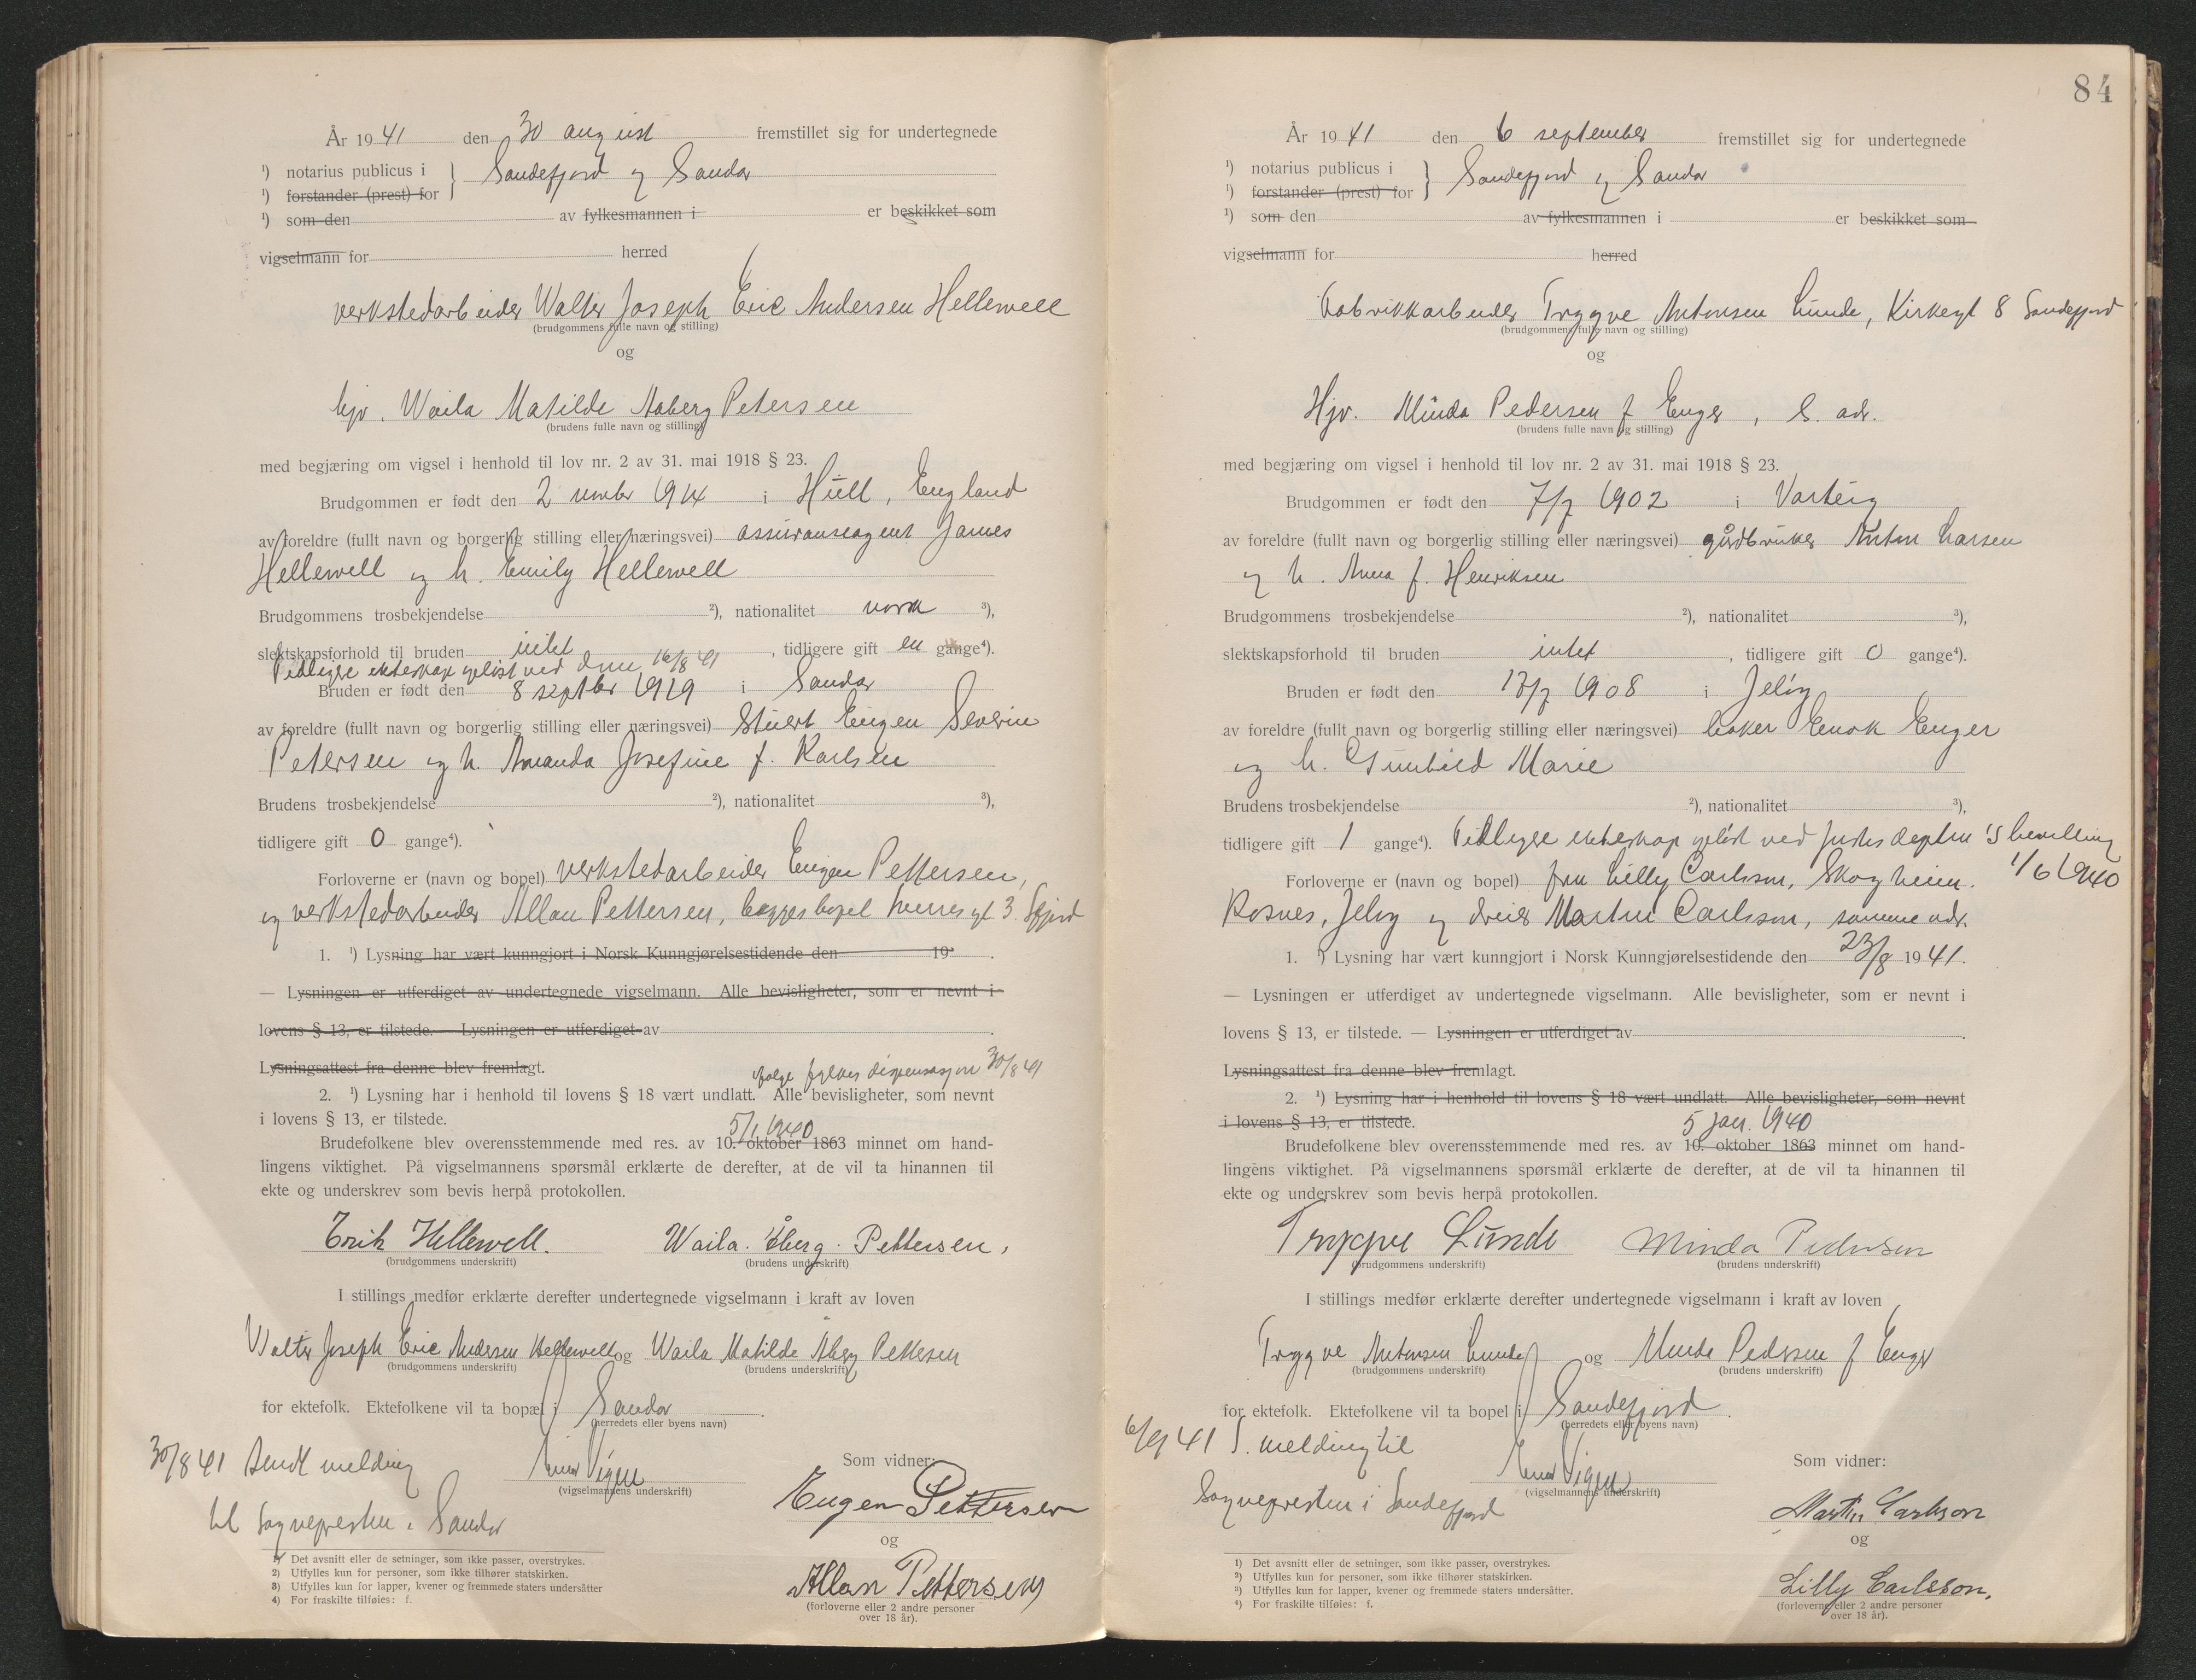 År 1941 den 30 august fremstillet sig for undertegnede
¹) notarius publicus i } Sandefjord og Sandar
¹) forstander (prest) for
¹) som den av fylkesmannen i er beskikket som
vigselmann for herred
verkstedarbeider Walter Joseph Eric Andersen Hellewell
(brudgommens fulle navn og stilling)
og
hjv. Waila Matilde Aaberg Petersen
(brudens fulle navn og stilling)
med begjæring om vigsel i henhold til lov nr. 2 av 31. mai 1918 § 23.
Brudgommen er født den 2 novbr 1914 i Hull, England
av foreldre (fullt navn og borgerlig stilling eller næringsvei) assuranseagent James
Hellewell og h. Emily Hellewell
Brudgommens trosbekjendelse ²), nationalitet norsk ³),
slektskapsforhold til bruden intet, tidligere gift en gange⁴).
Tidligere ekteskap opløst ved dom 16/8 41
Bruden er født den 8 septbr 1919 i Sandar
av foreldre (fullt navn og borgerlig stilling eller næringsvei) Stuert Eugen Severin
Petersen og h. Amanda Josefine f. Karlsen
Brudens trosbekjendelse ²), nationalitet ³),
tidligere gift 0 gange⁴).
Forloverne er (navn og bopel) verkstedarbeider Eugen Pettersen,
og verkstedarbeider Allan Pettersen, begges bopel 3. Sfjord
1. ¹) Lysning har vært kunngjort i Norsk Kunngjørelsestidende den 19 .
— Lysningen er utferdiget av undertegnede vigselmann. Alle bevisligheter, som er nevnt i
lovens § 13, er tilstede. — Lysningen er utferdiget av .
Lysningsattest fra denne blev fremlagt.
ifølge fylkes dispensasjon 30/8 41
2. ¹) Lysning har i henhold til lovens § 18 vært undlatt. Alle bevisligheter, som nevnt
i lovens § 13, er tilstede.
5/1 1940
Brudefolkene blev overensstemmende med res. av 10. oktober 1863 minnet om hand-
lingens viktighet. På vigselmannens spørsmål erklærte de derefter, at de vil ta hinannen til
ekte og underskrev som bevis herpå protokollen.
Erik Hellewell. Waila. Åberg. Pettersen,
(brudgommens underskrift) (brudens underskrift)
I stillings medfør erklærte derefter undertegnede vigselmann i kraft av loven
Walter Joseph Eric Andersen Hellewell og Waila Matilde Åberg Pettersen
(brudgommens underskrift) (brudens underskrift)
for ektefolk. Ektefolkene vil ta bopæl i Sandar .
(herredets eller byens navn)
30/8 41 sendt melding
til sognepresten i Sandar
Einar Vigen
(vigselmannens underskrift)
Som vidner:
Eugen Pettersen
og
Allan Pettersen
(forloverne eller 2 andre personer
over 18 år).
1) Det avsnitt eller de setninger, som ikke passer, overstrykes.
2) Utfylles kun for personer, som ikke tilhører statskirken.
3) Utfylles kun for lapper, kvener og fremmede staters undersåtter
4) For fraskilte tilføies: f.
84
År 1941 den 6 september fremstillet sig for undertegnede
¹) notarius publicus i } Sandefjord og Sandar
¹) forstander (prest) for
¹) som den av fylkesmannen i er beskikket som
vigselmann for herred
Fabrikkarbeider Trygve Antonsen Lunde, Kirkegt 8 Sandefjord
(brudgommens fulle navn og stilling)
og
Hjv. Minda Pedersen f Enger, s. adr.
(brudens fulle navn og stilling)
med begjæring om vigsel i henhold til lov nr. 2 av 31. mai 1918 § 23.
Brudgommen er født den 7/7 1902 i Varteig
av foreldre (fullt navn og borgerlig stilling eller næringsvei) gårdbruker Anton Larsen
og h. Anna f. Henriksen
Brudgommens trosbekjendelse ²), nationalitet ³),
slektskapsforhold til bruden intet, tidligere gift 0 gange⁴).
Bruden er født den 17/7 1908 i Jeløy
av foreldre (fullt navn og borgerlig stilling eller næringsvei) baker Enok Enger
og h. Gunhild Marie
Brudens trosbekjendelse ²), nationalitet ³),
tidligere gift 1 gange⁴). Tidligere ekteskap opløst ved Justisdeptm's bevilling
1/6 1940
Forloverne er (navn og bopel) fru Lilly Carlsson, Skogheim.
Rosnes, Jeløy og dreier Martin Carlsson, samme adr.
1. ¹) Lysning har vært kunngjort i Norsk Kunngjørelsestidende den 23/8 1941.
— Lysningen er utferdiget av undertegnede vigselmann. Alle bevisligheter, som er nevnt i
lovens § 13, er tilstede. — Lysningen er utferdiget av .
Lysningsattest fra denne blev fremlagt.
2. ¹) Lysning har i henhold til lovens § 18 vært undlatt. Alle bevisligheter, som nevnt
i lovens § 13, er tilstede.
5 jan. 1940
Brudefolkene blev overensstemmende med res. av 10. oktober 1863 minnet om hand-
lingens viktighet. På vigselmannens spørsmål erklærte de derefter, at de vil ta hinannen til
ekte og underskrev som bevis herpå protokollen.
Trygve Lunde Minda Pedersen
(brudgommens underskrift) (brudens underskrift)
I stillings medfør erklærte derefter undertegnede vigselmann i kraft av loven
Trygve Antonsen Lunde og Minda Pedersen f Enger
(brudgommens underskrift) (brudens underskrift)
for ektefolk. Ektefolkene vil ta bopel i Sandefjord .
(herredets eller byens navn)
6/9 41 s. melding til
Sognepresten i Sandefjord
Einar Vigen
(vigselmannens underskrift)
Som vidner:
Martin Carlsson
og
Lilly Carlsson,
(forloverne eller 2 andre personer
over 18 år).
1) Det avsnitt eller de setninger, som ikke passer, overstrykes.
²) Utfylles kun for personer, som ikke tilhører statskirken.
³) Utfylles kun for lapper, kvener og fremmede staters undersåtter.
⁴) For fraskilte tilføies: f.